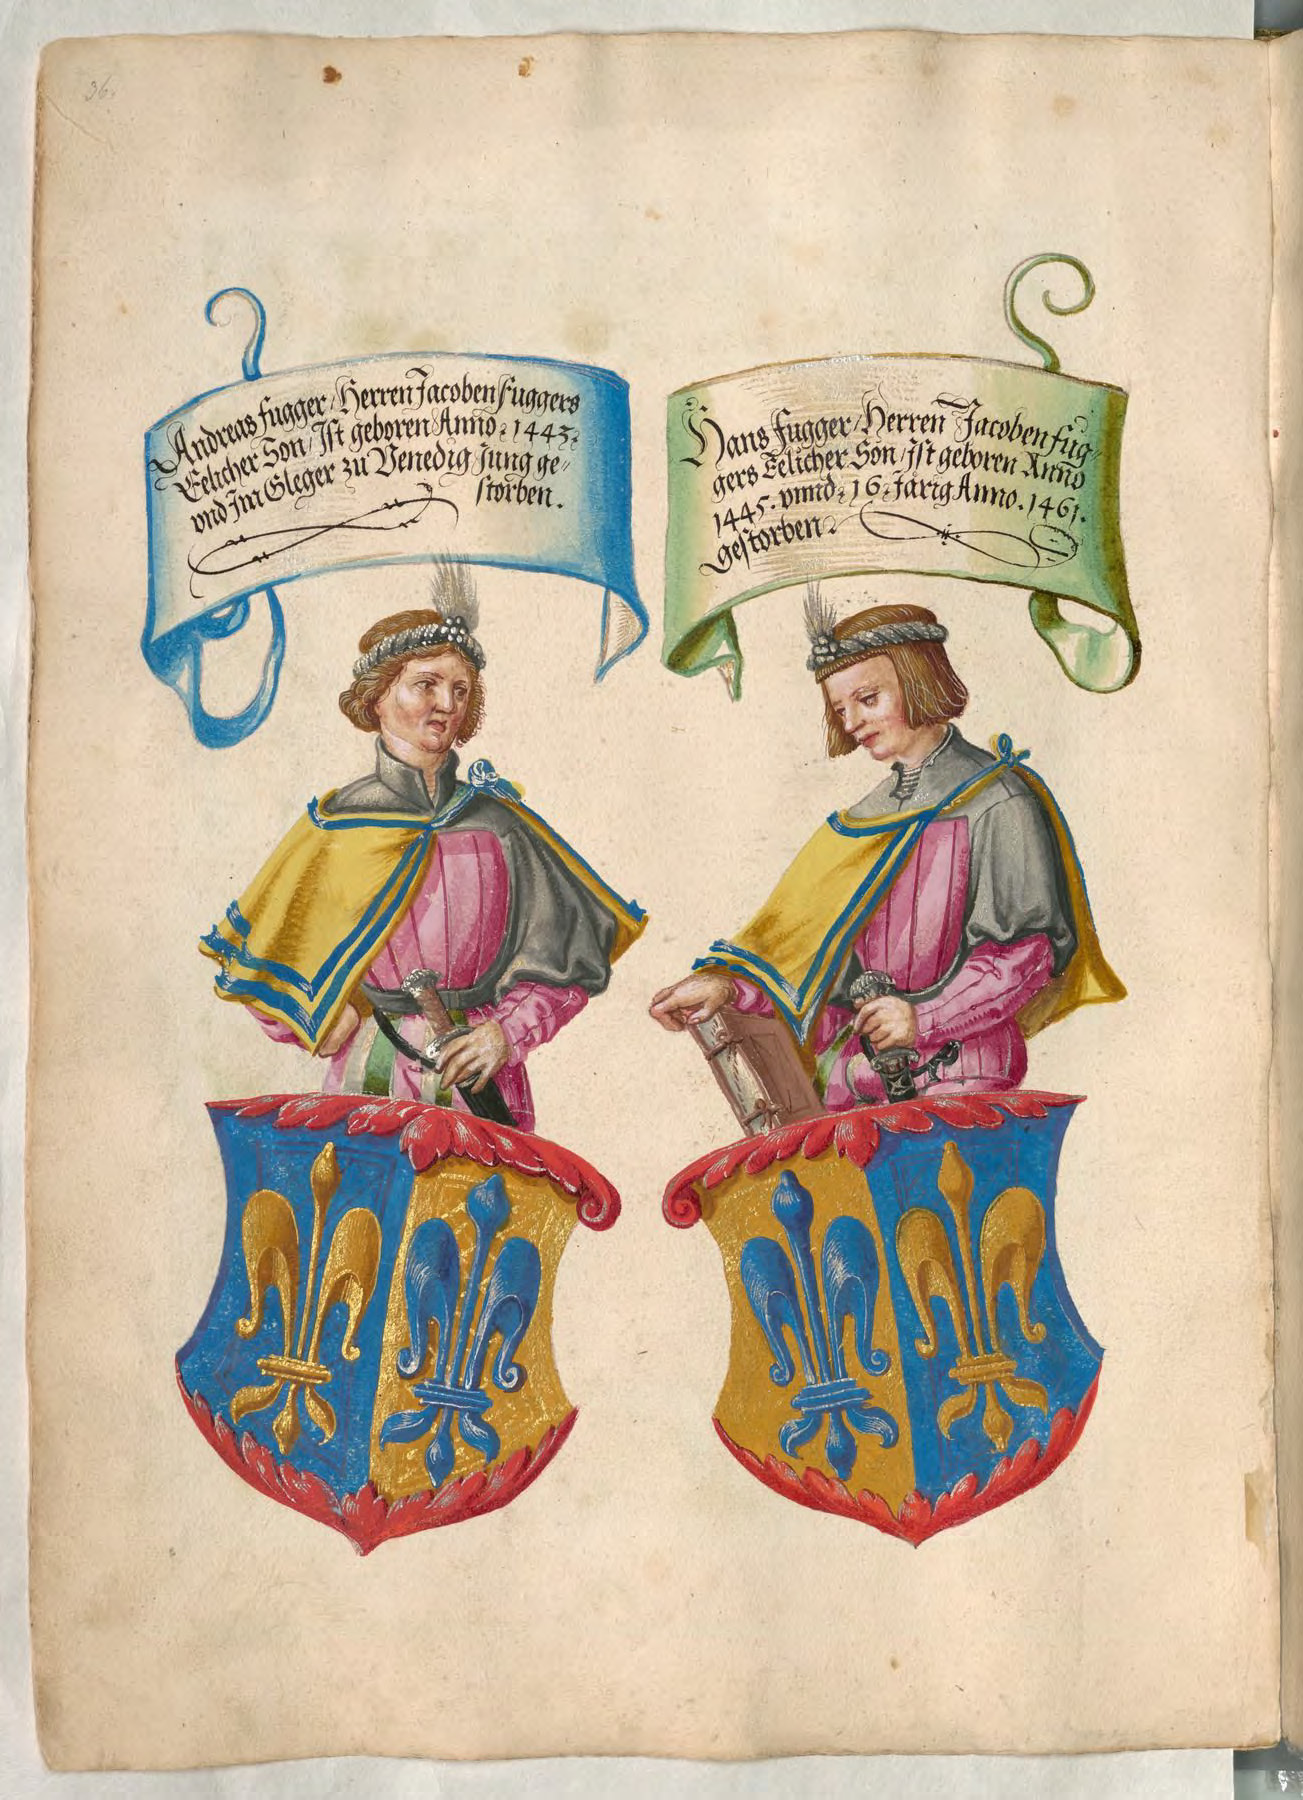 36.
Andreas Fugger / Herren Jacoben Fuggers
Eelicher Son / Ist geboren Anno. 1443.
vnd Im Gleger zu Venedig Jung ge„
storben.
Hans Fugger / Herren Jacoben Fug„
gers Eelicher Son / ist geboren Anno
1445. vnnd. 16. Jarig Anno. 1461.
gestorben.